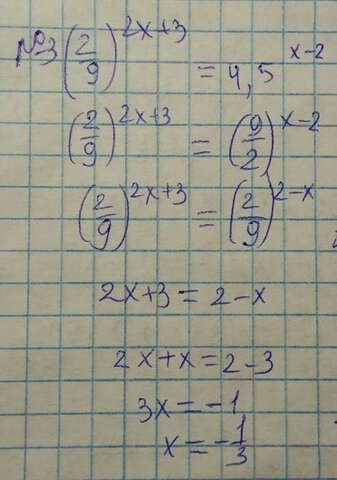 №3 (2/9)^(2x+3) = 4,5^(x-2)
(2/9)^(2x+3) = (9/2)^(x-2)
(2/9)^(2x+3) = (2/9)^(2-x)
2x+3 = 2-x
2x+x = 2-3
3x = -1
x = -1/3